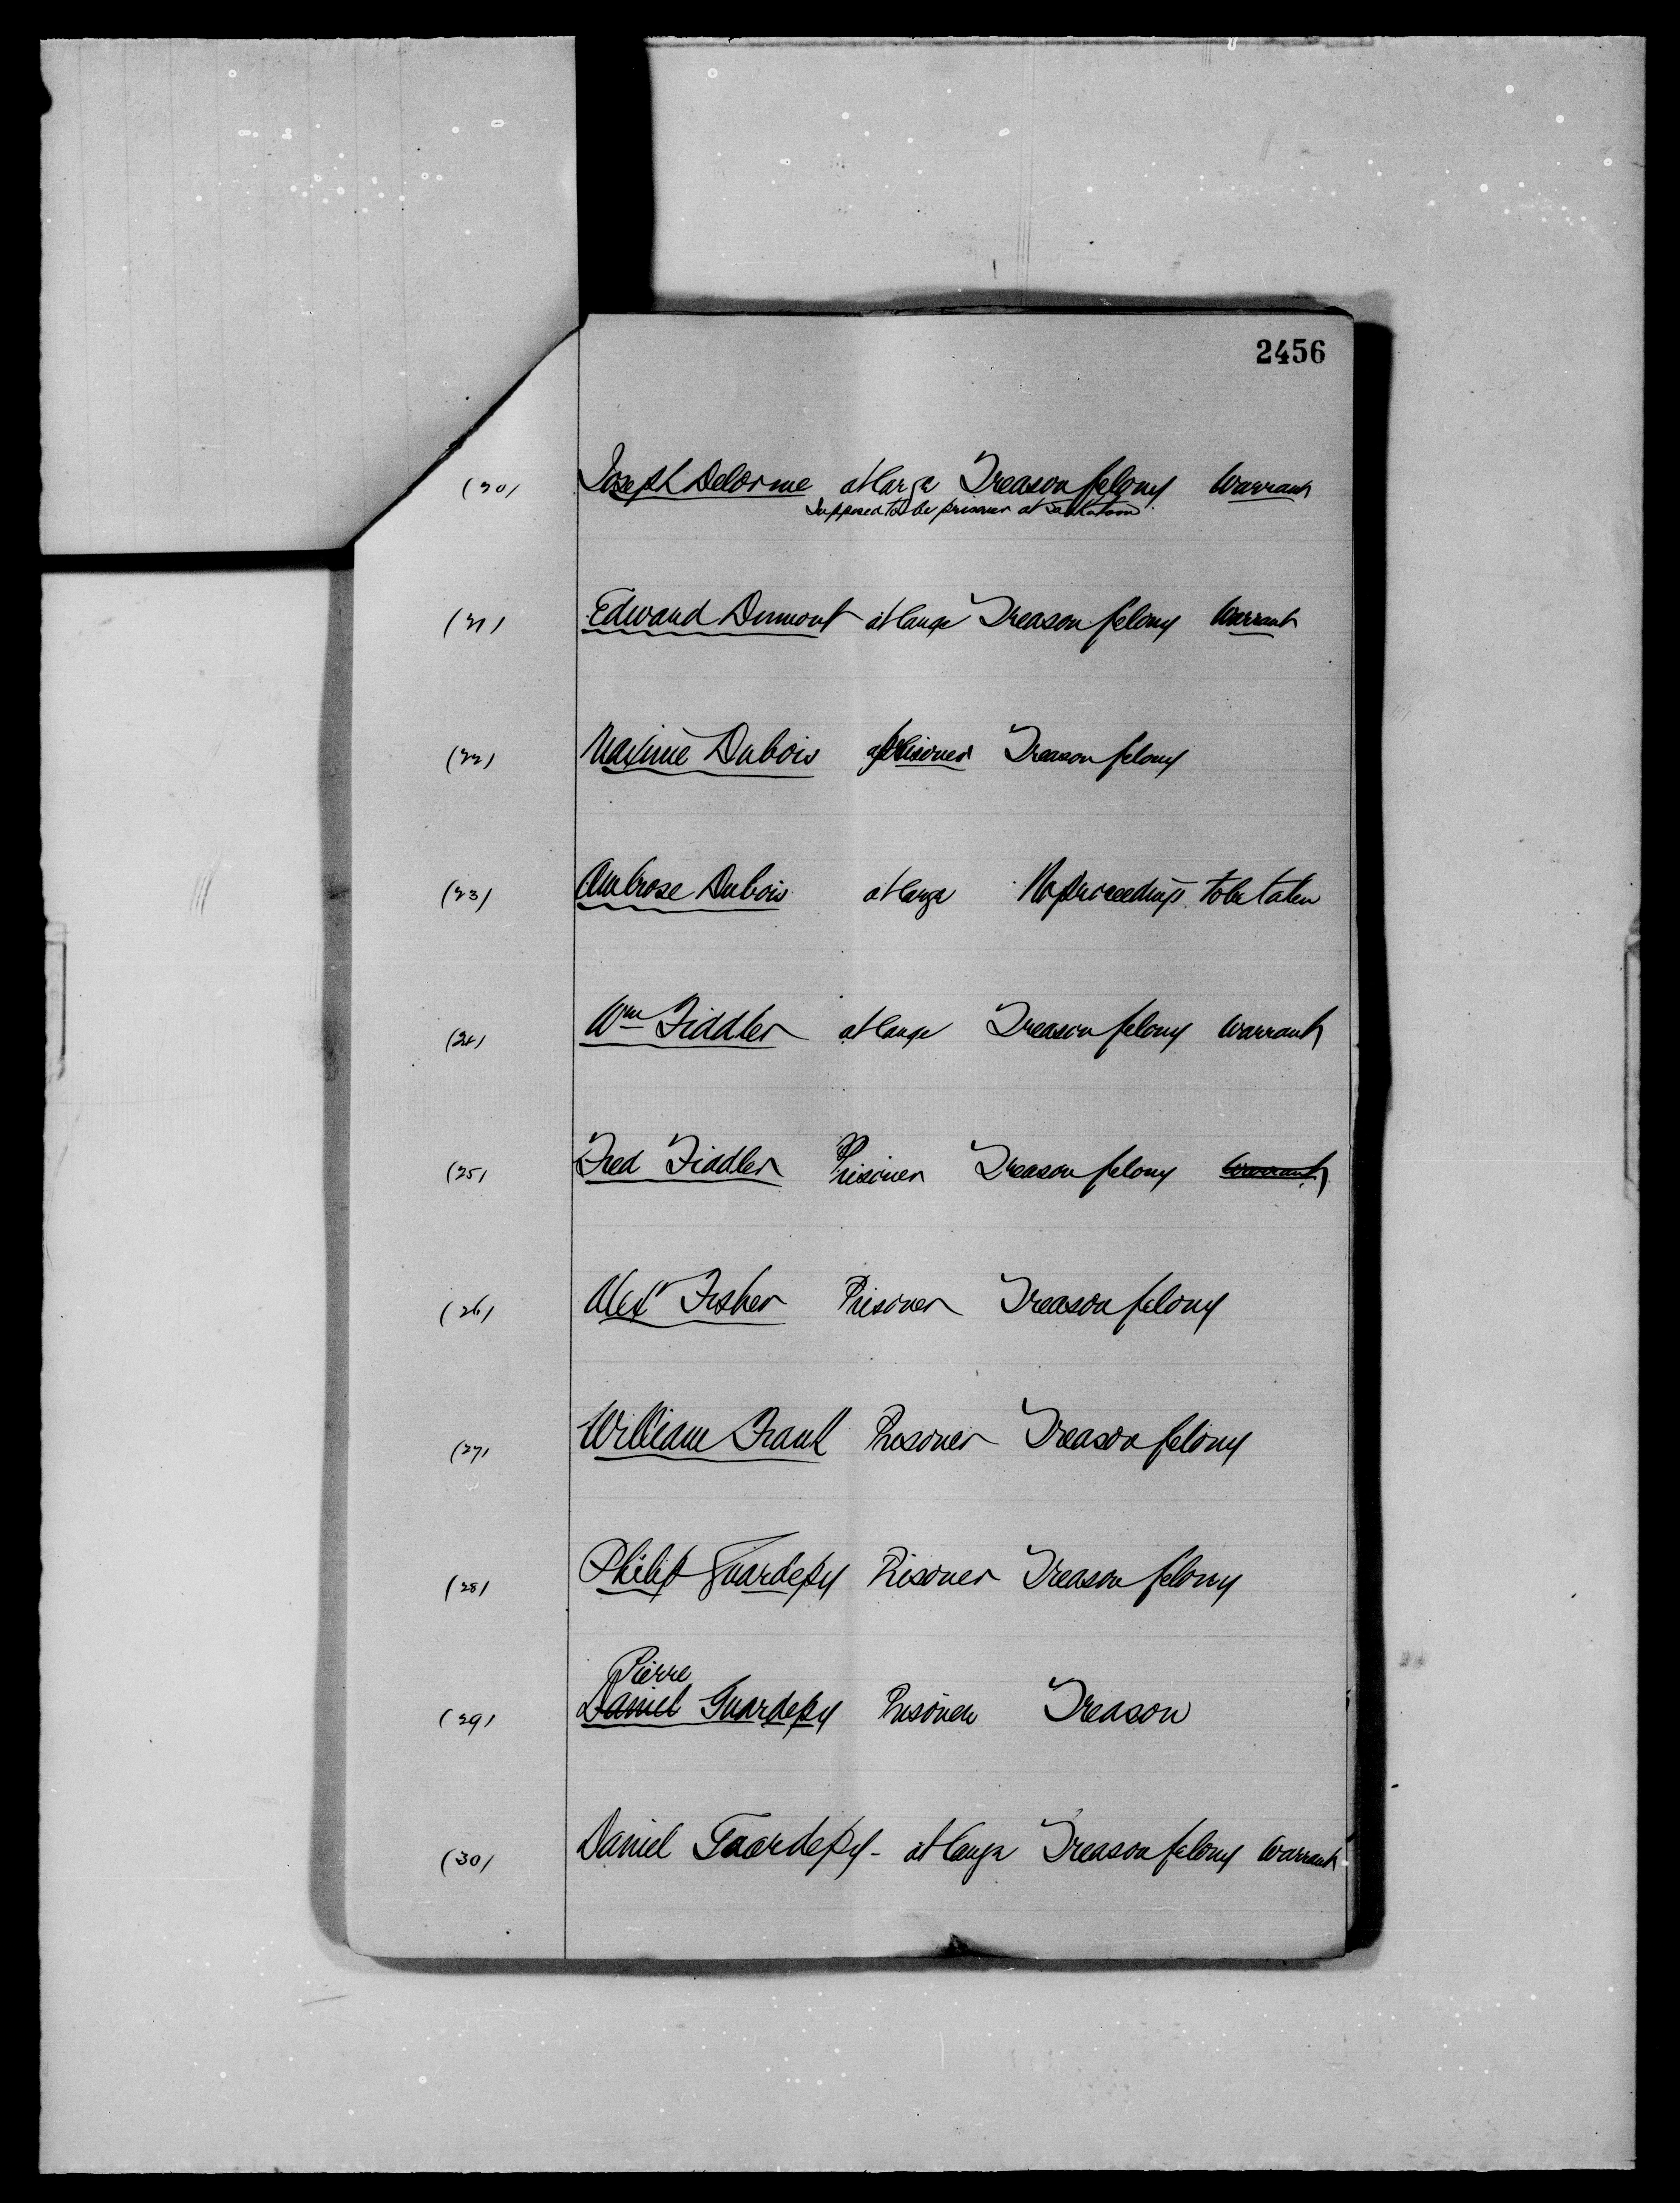 2456
(20) Joseph Delorme at large Treason felony Warrant
Supposed to be prisoner at Saskatoon
(21) Edward Dumont at large Treason felony Warrant
(22) Maxime Dubois prisoner Treason felony
(23) Ambrose Dubois at large No proceedings to be taken
(24) Wm Fiddler at large Treason felony Warrant
(25) Fred Fiddler Prisoner Treason felony Warrant
(26) Alexr Fisher Prisoner Treason felony
(27) William Frank Prisoner Treason felony
(28) Philip Guardepy Prisoner Treason felony
Pierre
(29) Daniel Guardepy Prisoner Treason
(30) Daniel Guardepy - at large Treason felony Warrant